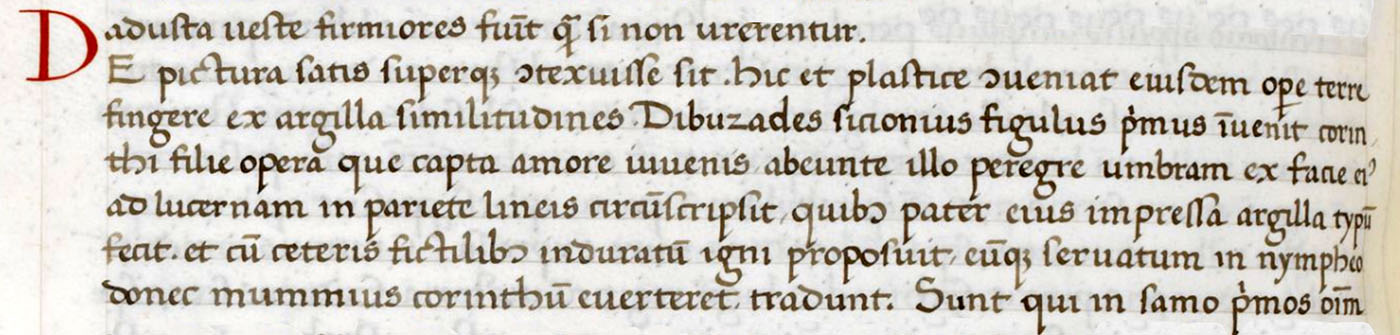 adusta ueste firmiores fuīt q̄ si non urerentur.
DE pictura satis superqꝫ ꝯtexuisse sit. hic et plastice ꝯueniat eiusdem ope terre
fingere ex argilla similitudines. Dibuzades sicionius figulus pͥmus īuenit corin
thi filie opera que capta amore iuuenis abeunte illo peregre umbram ex facie eiꝰ
ad lucernam in pariete lineis circūscripsit, quibꝫ pater eius impressa argilla typū
fecit. et cū ceteris fictilibꝫ induratū igni proposuit, eūqꝫ seruatum in nympheo
donec mummius corinthū euerteret tradunt. Sunt qui in samo pͥmos oīm